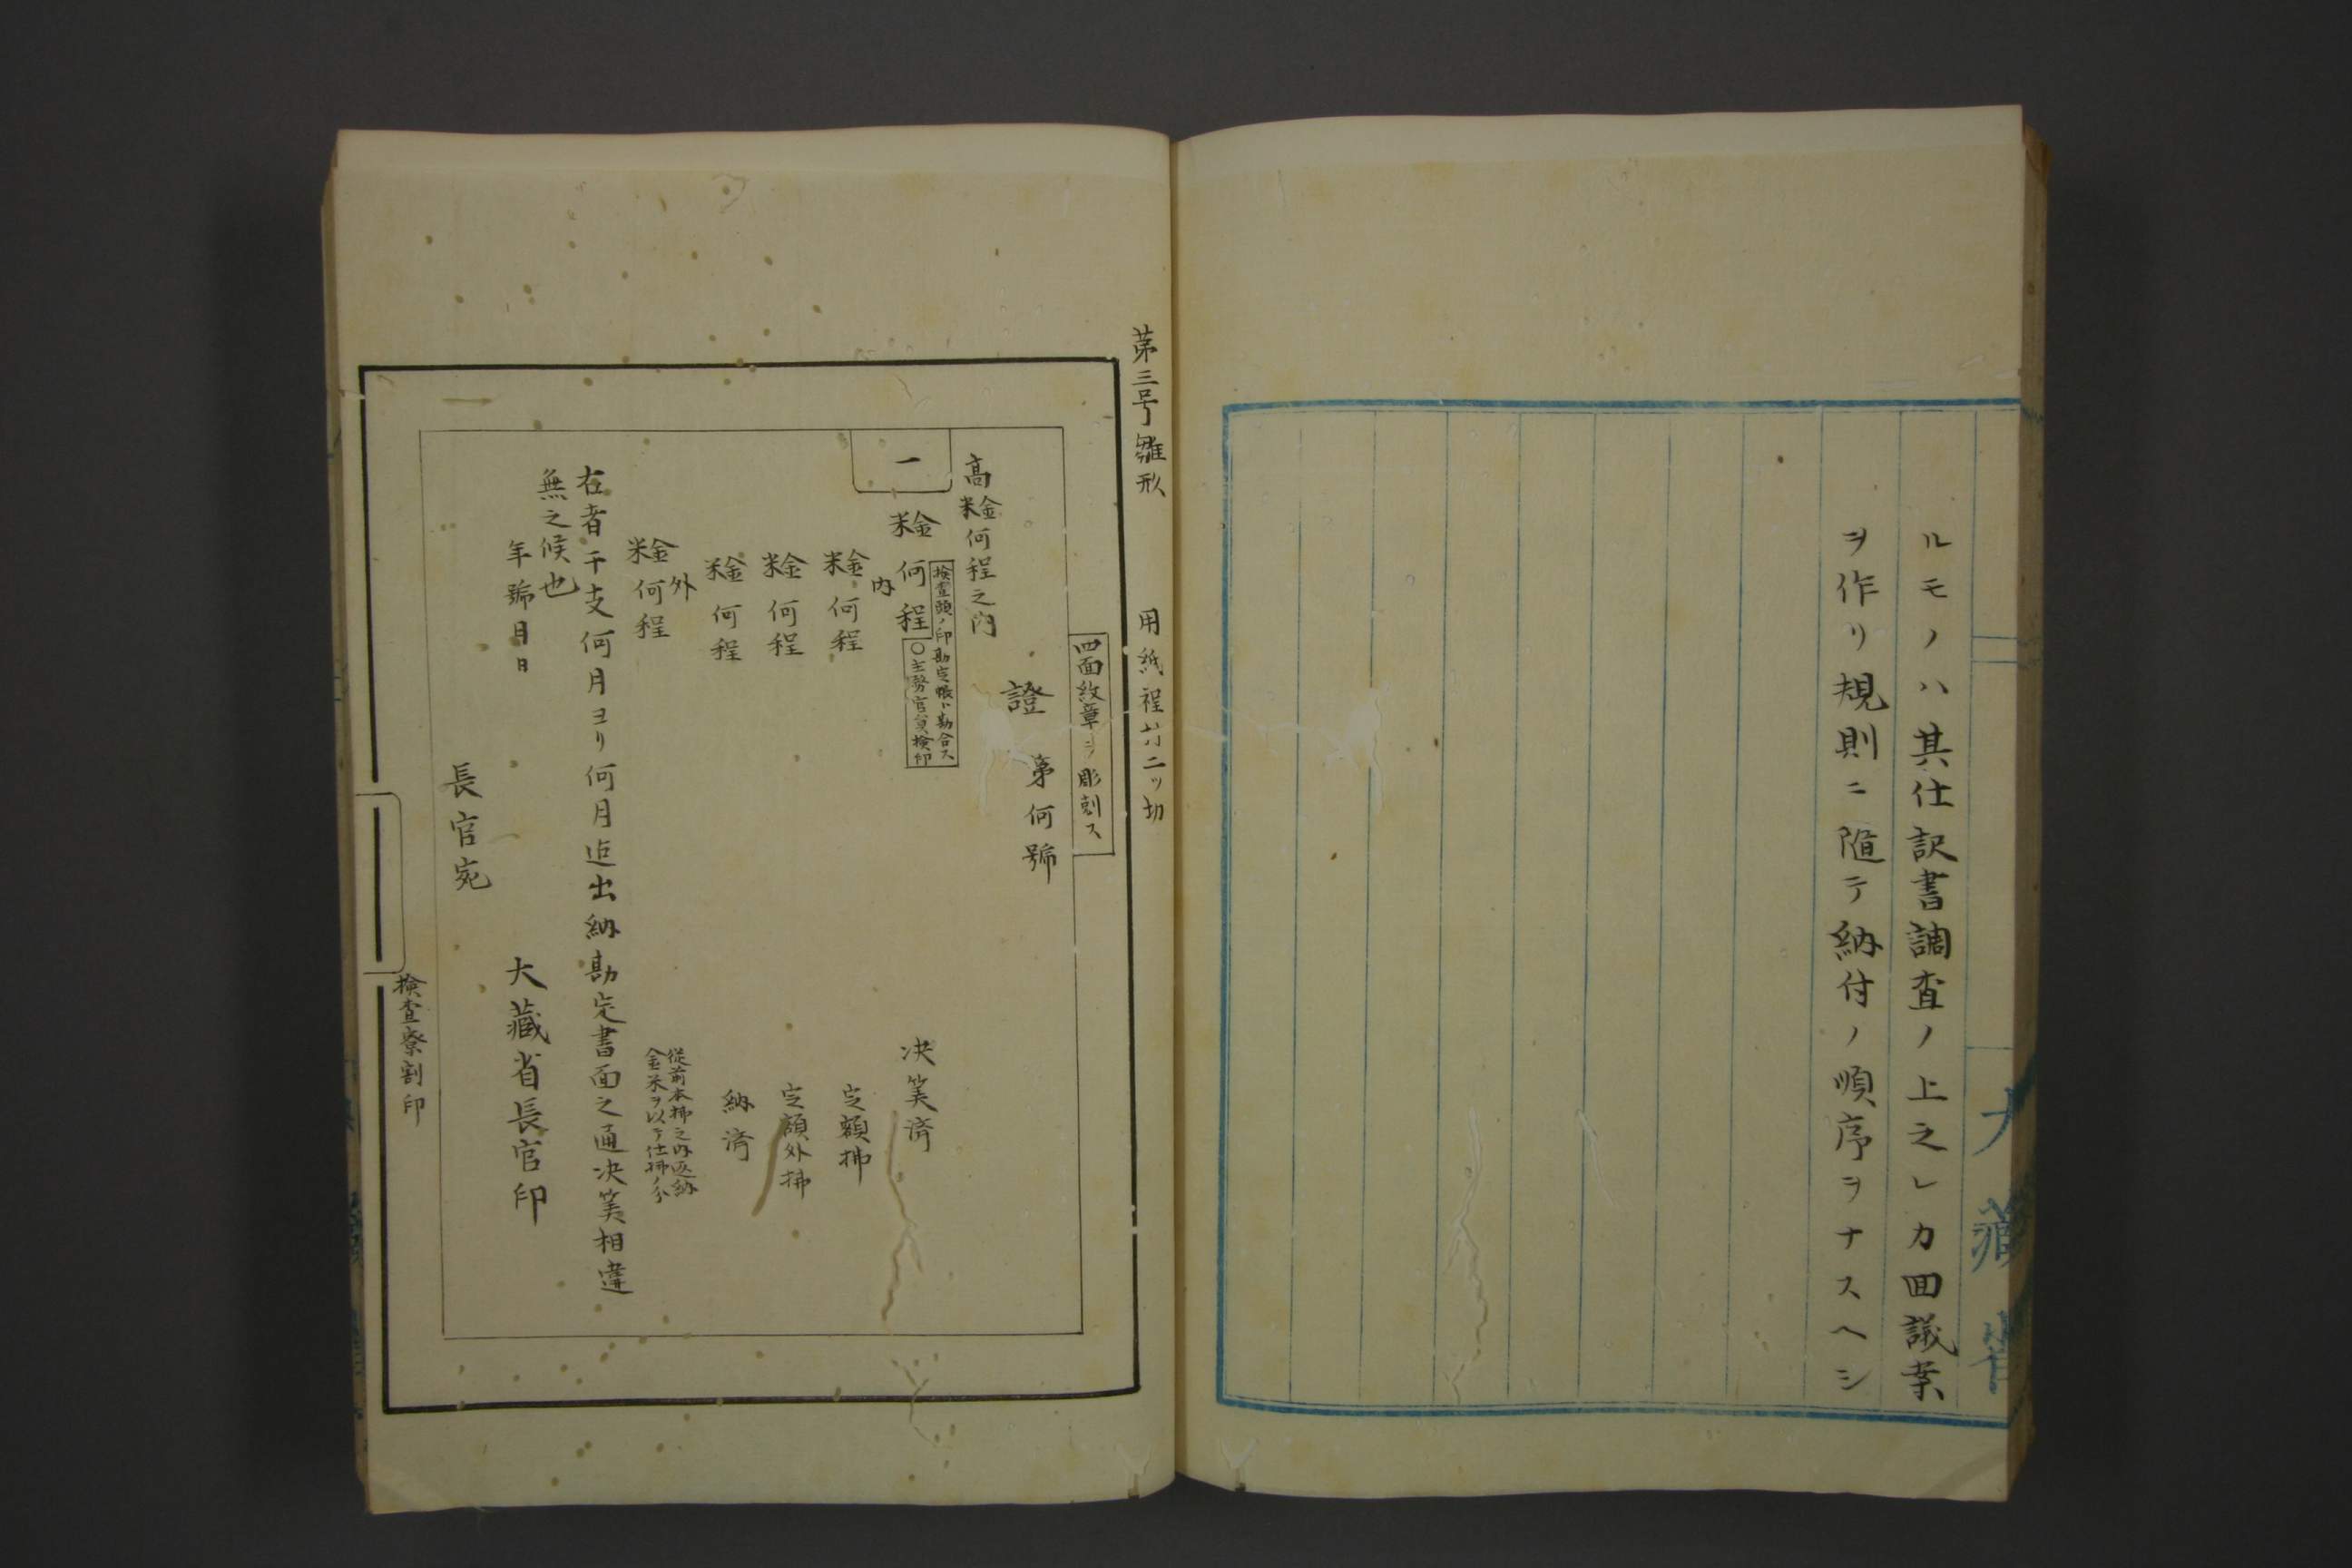 ルモノハ其仕訳書調査ノ上之レカ回議案
ヲ作リ規則ニ隨テ納付ノ順序ヲナスヘシ
大藏省
第三号雛形
用紙程村二ツ切
四面紋章ヲ彫刻ス
證 第何號
高金米何程之内
一
金米何程 決算済
検査頭ノ印勘定帳ト勘合ス
○主務官員検印
内
金米何程 定額拂
金米何程 定額外拂
金米何程 納済
外
金米何程
従前本拂之内返納
金米ヲ以テ仕拂ノ分
右者干支何月ヨリ何月迄出納勘定書面之通决算相違
無之候也
年號月日
大藏省長官印
長官宛
検査寮割印